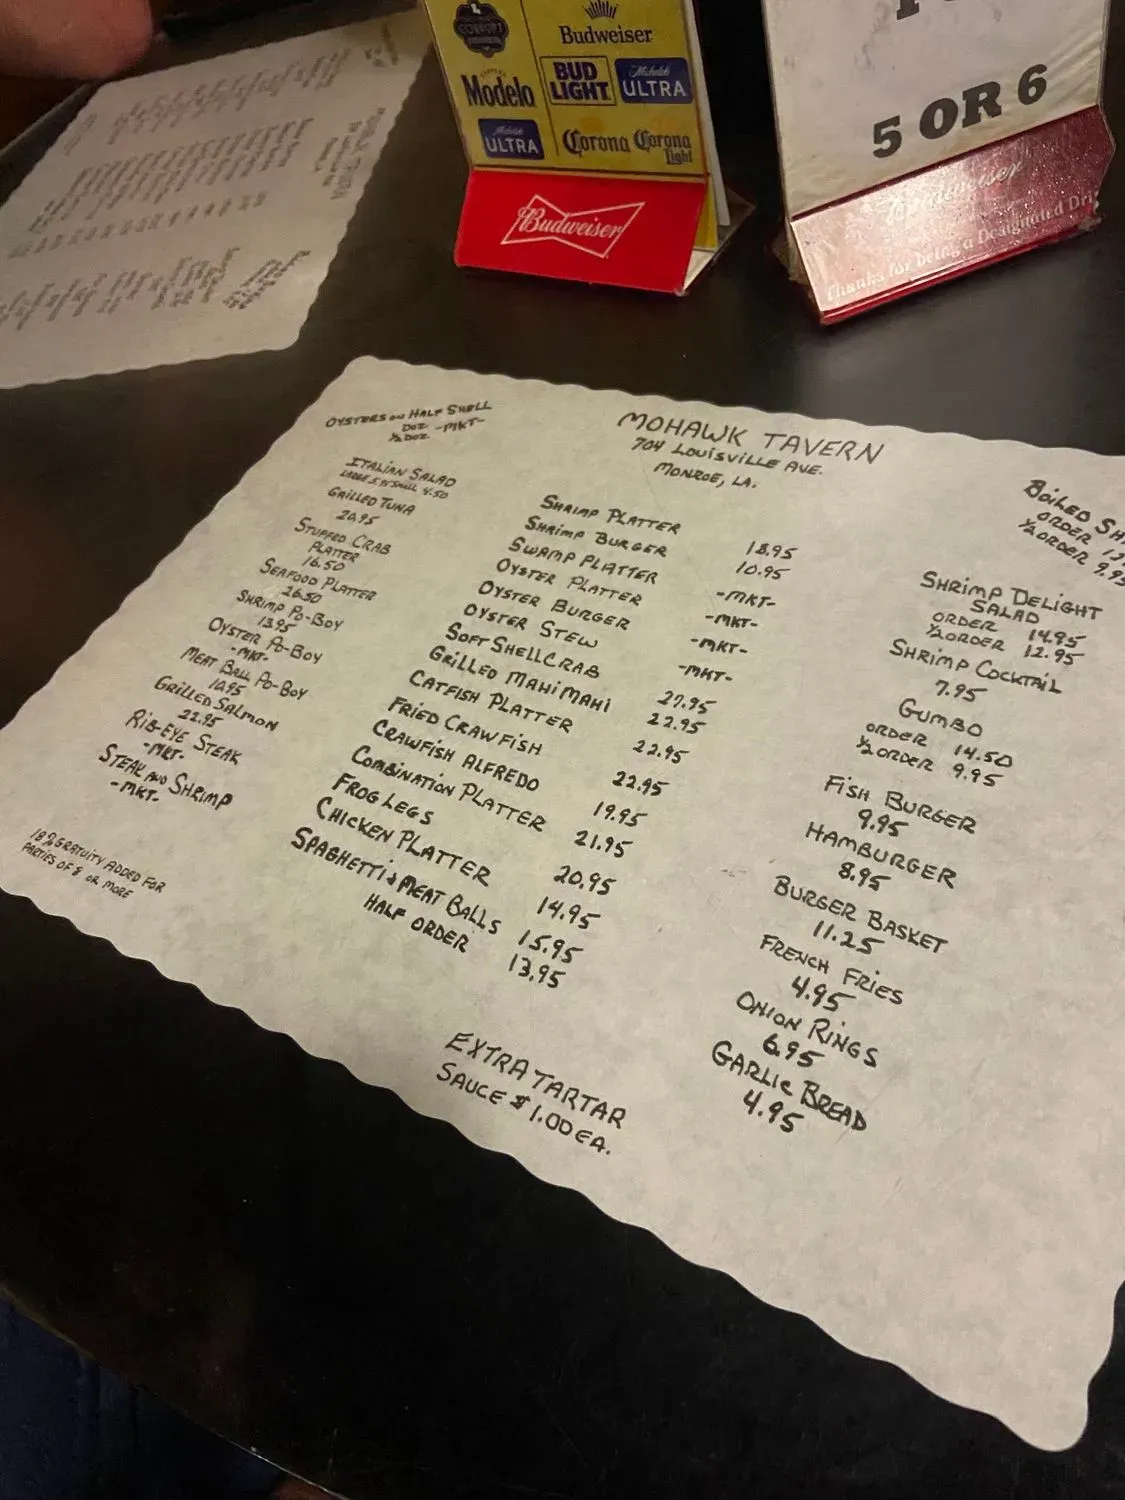 Budweiser
Modelo
BUD LIGHT
Michelob ULTRA
Michelob ULTRA
Corona
Corona Light
Budweiser
5 OR 6
Budweiser
Thanks for being a Designated
OYSTERS ON HALF SHELL
DOZ -MKT-
1/2 DOZ
ITALIAN SALAD
GRILLED TUNA
20.95
STUFFED CRAB
PLATTER
16.50
SEAFOOD PLATTER
26.50
SHRIMP PO-BOY
13.95
OYSTER PO-BOY
-MKT-
MEAT BALL PO-BOY
10.95
GRILLED SALMON
22.95
RIB-EYE STEAK
-MKT-
STEAK AND SHRIMP
-MKT-
18% GRATUITY ADDED FOR
PARTIES OF 8 OR MORE
MOHAWK TAVERN
704 LOUISVILLE AVE.
MONROE, LA.
SHRIMP PLATTER 18.95
SHRIMP BURGER 10.95
SWAMP PLATTER -MKT-
OYSTER PLATTER -MKT-
OYSTER BURGER -MKT-
OYSTER STEW -MKT-
SOFT SHELL CRAB 27.95
GRILLED MAHI MAHI 22.95
CATFISH PLATTER 22.95
FRIED CRAWFISH 22.95
CRAWFISH ALFREDO 19.95
COMBINATION PLATTER 21.95
FROG LEGS 20.95
CHICKEN PLATTER 14.95
SPAGHETTI & MEAT BALLS 15.95
HALF ORDER 13.95
EXTRA TARTAR
SAUCE $1.00 EA.
BOILED
ORDER
1/2 ORDER 9.95
SHRIMP DELIGHT
SALAD
ORDER 14.95
1/2 ORDER 12.95
SHRIMP COCKTAIL
7.95
GUMBO
ORDER 14.50
1/2 ORDER 9.95
FISH BURGER
9.95
HAMBURGER
8.95
BURGER BASKET
11.25
FRENCH FRIES
4.95
ONION RINGS
6.95
GARLIC BREAD
4.95